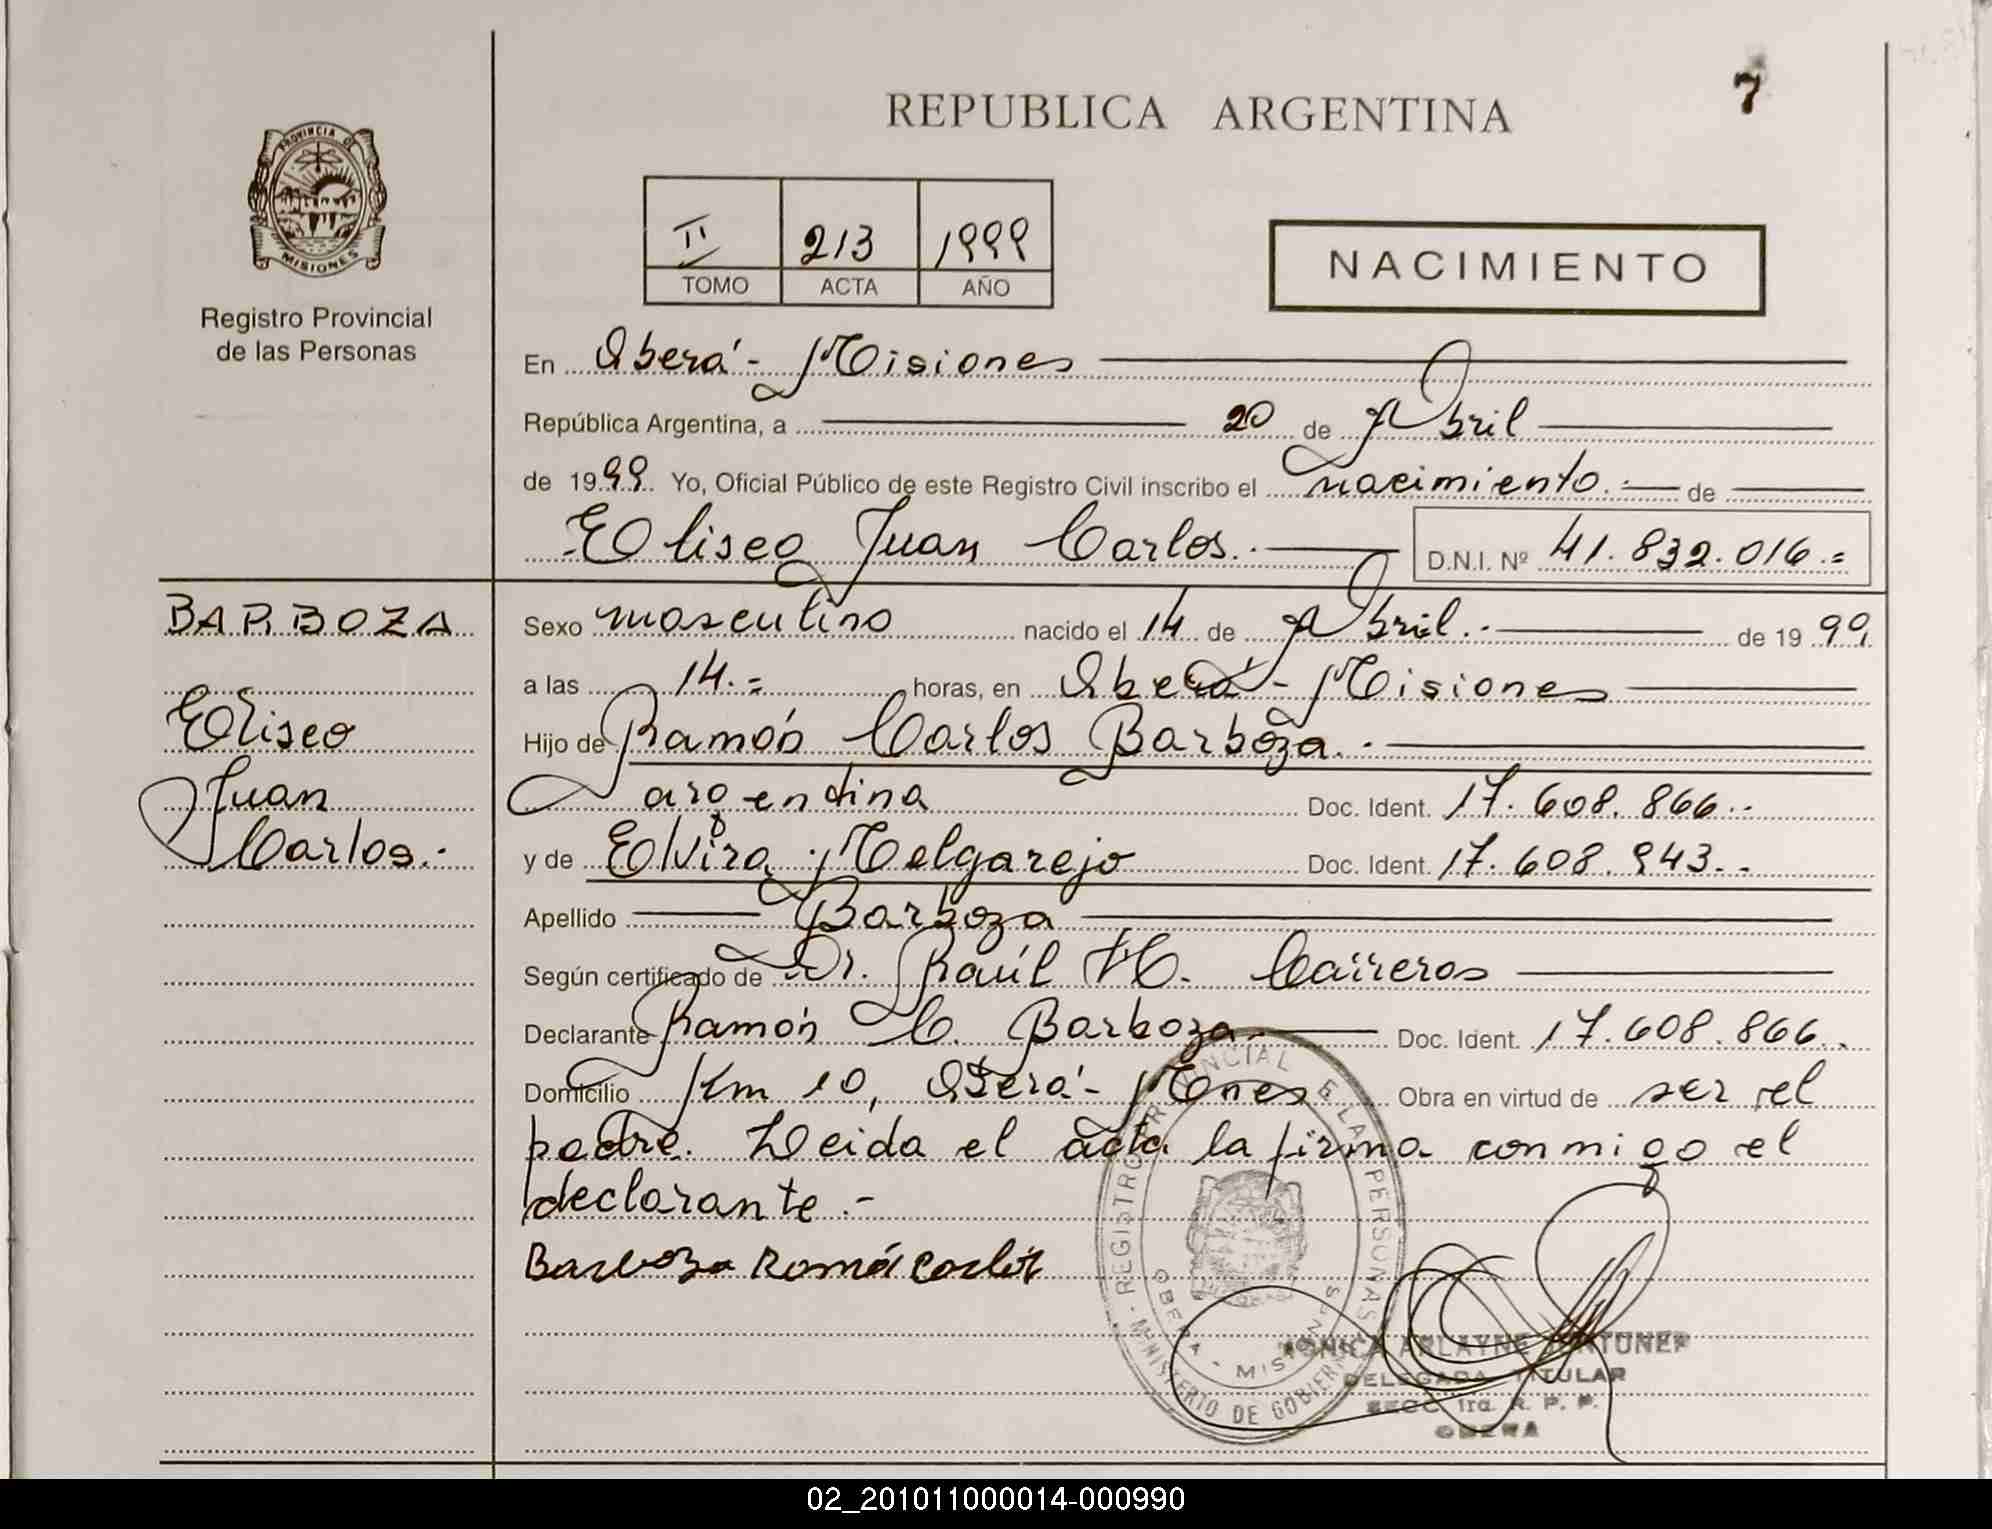 7
REPUBLICA ARGENTINA
PROVINCIA DE
MISIONES
Registro Provincial
de las Personas
II 213 1999
TOMO ACTA AÑO
NACIMIENTO
En Oberá - Misiones
República Argentina, a 20 de Abril
de 1999. Yo, Oficial Público de este Registro Civil inscribo el nacimiento.- de
Eliseo Juan Carlos.- D.N.I. Nº 41.832.016.=
BARBOZA
Eliseo
Juan
Carlos.-
Sexo masculino nacido el 14 de Abril.- de 1999
a las 14.= horas, en Oberá - Misiones
Hijo de Ramón Carlos Barboza.-
argentina Doc. Ident. 17.608.866.-
y de Elvira Melgarejo Doc. Ident. 17.608.943.-
Apellido Barboza
Según certificado de Dr. Raúl H.
Declarante Ramón C. Barboza Doc. Ident. 17.608.866.
Domicilio Km 10, Oberá - Mnes Obra en virtud de ser el
padre. Leida el acta la firma conmigo el
declarante.-
Barboza Ramón Carlos
REGISTRO PROVINCIAL DE LAS PERSONAS
MINISTERIO DE GOBIERNO
OBERA - MISIONES
MONICA ARLAYNE
DELEGADA TITULAR
SECC. 1ra. R. P. P.
OBERA
02_201011000014-000990